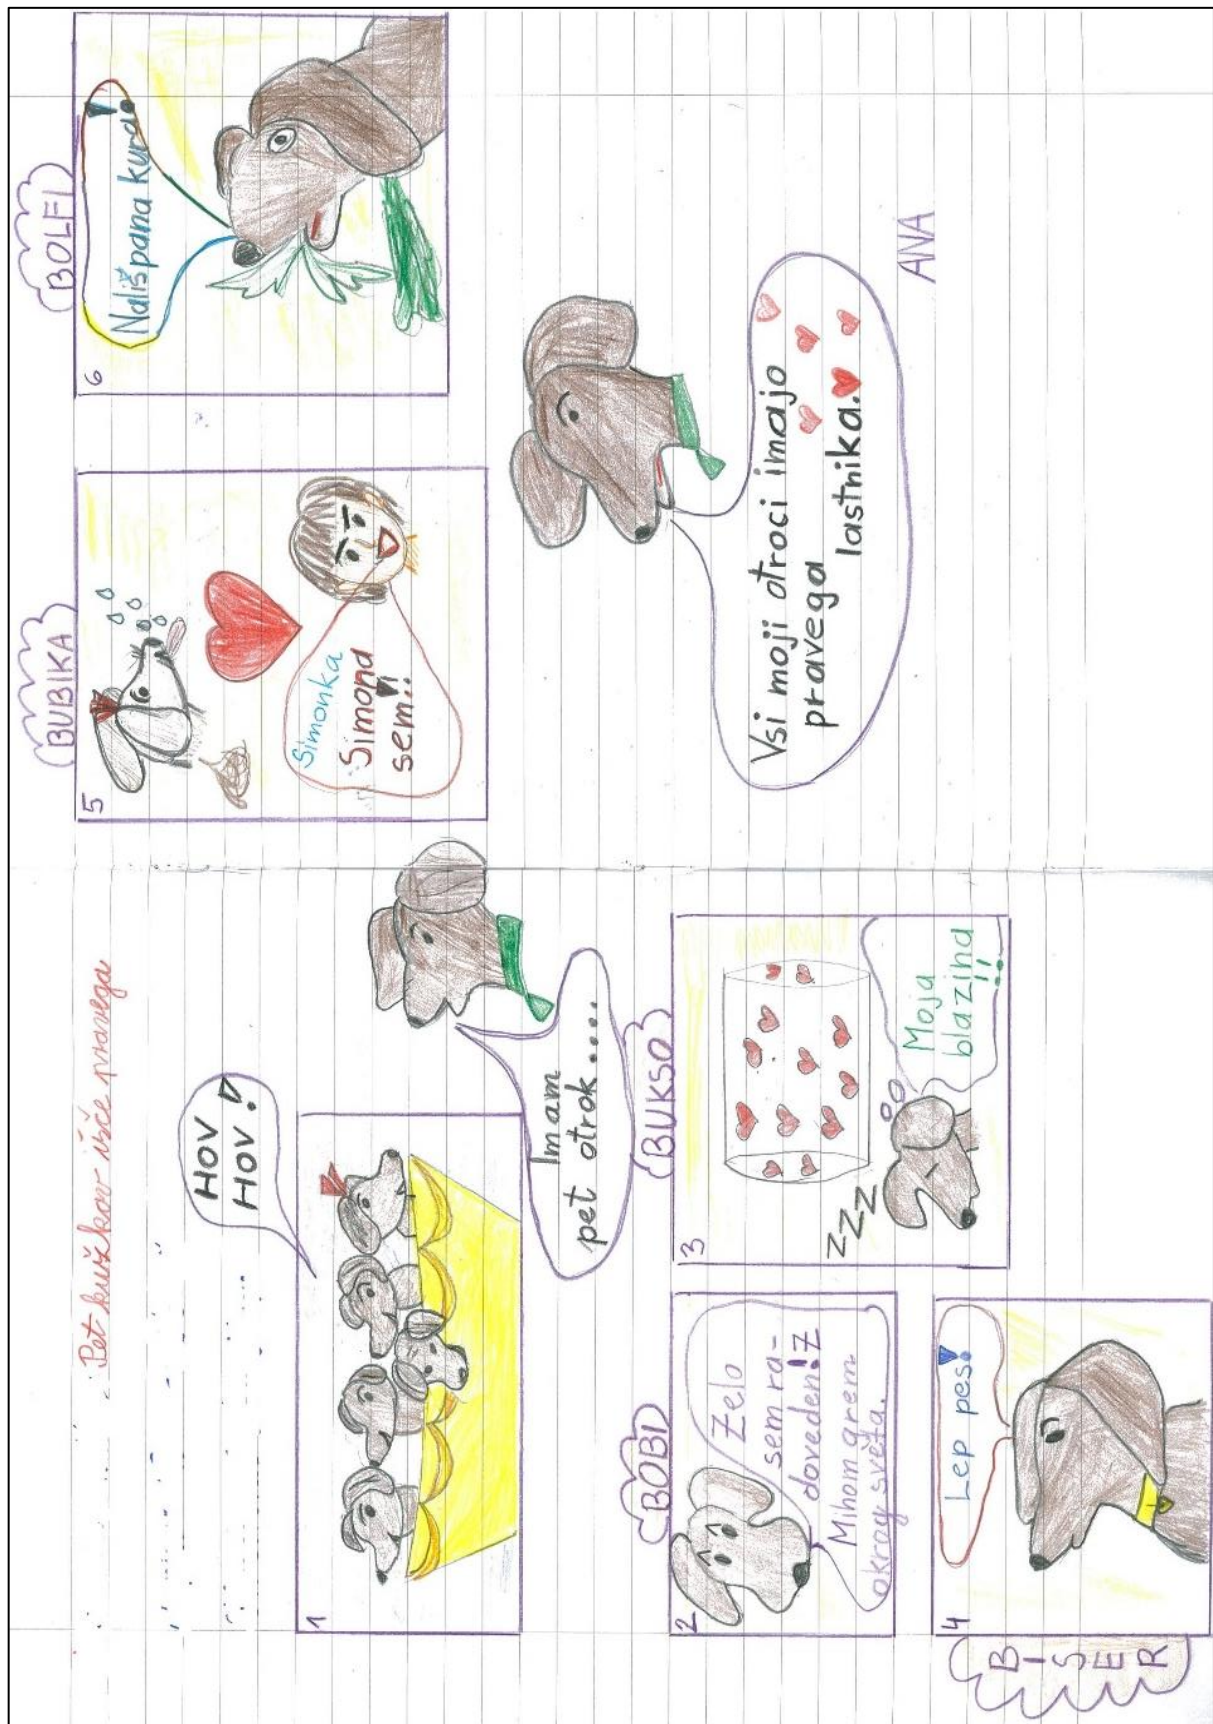 Pet kužkov išče pravega
1
HOV
HOV!
Imam
pet otrok....
BOBI
2
Zelo
sem ra-
doveden! Z
Mihom grem
okrog sveta.
BUKSO
3
ZZZ
Moja
blazina!!
BISER
4
Lep pes!
BUBIKA
5
Simonka
Simona
sem!!
BOLFI
6
Nališpana kura!
Vsi moji otroci imajo
pravega
lastnika.
ANA